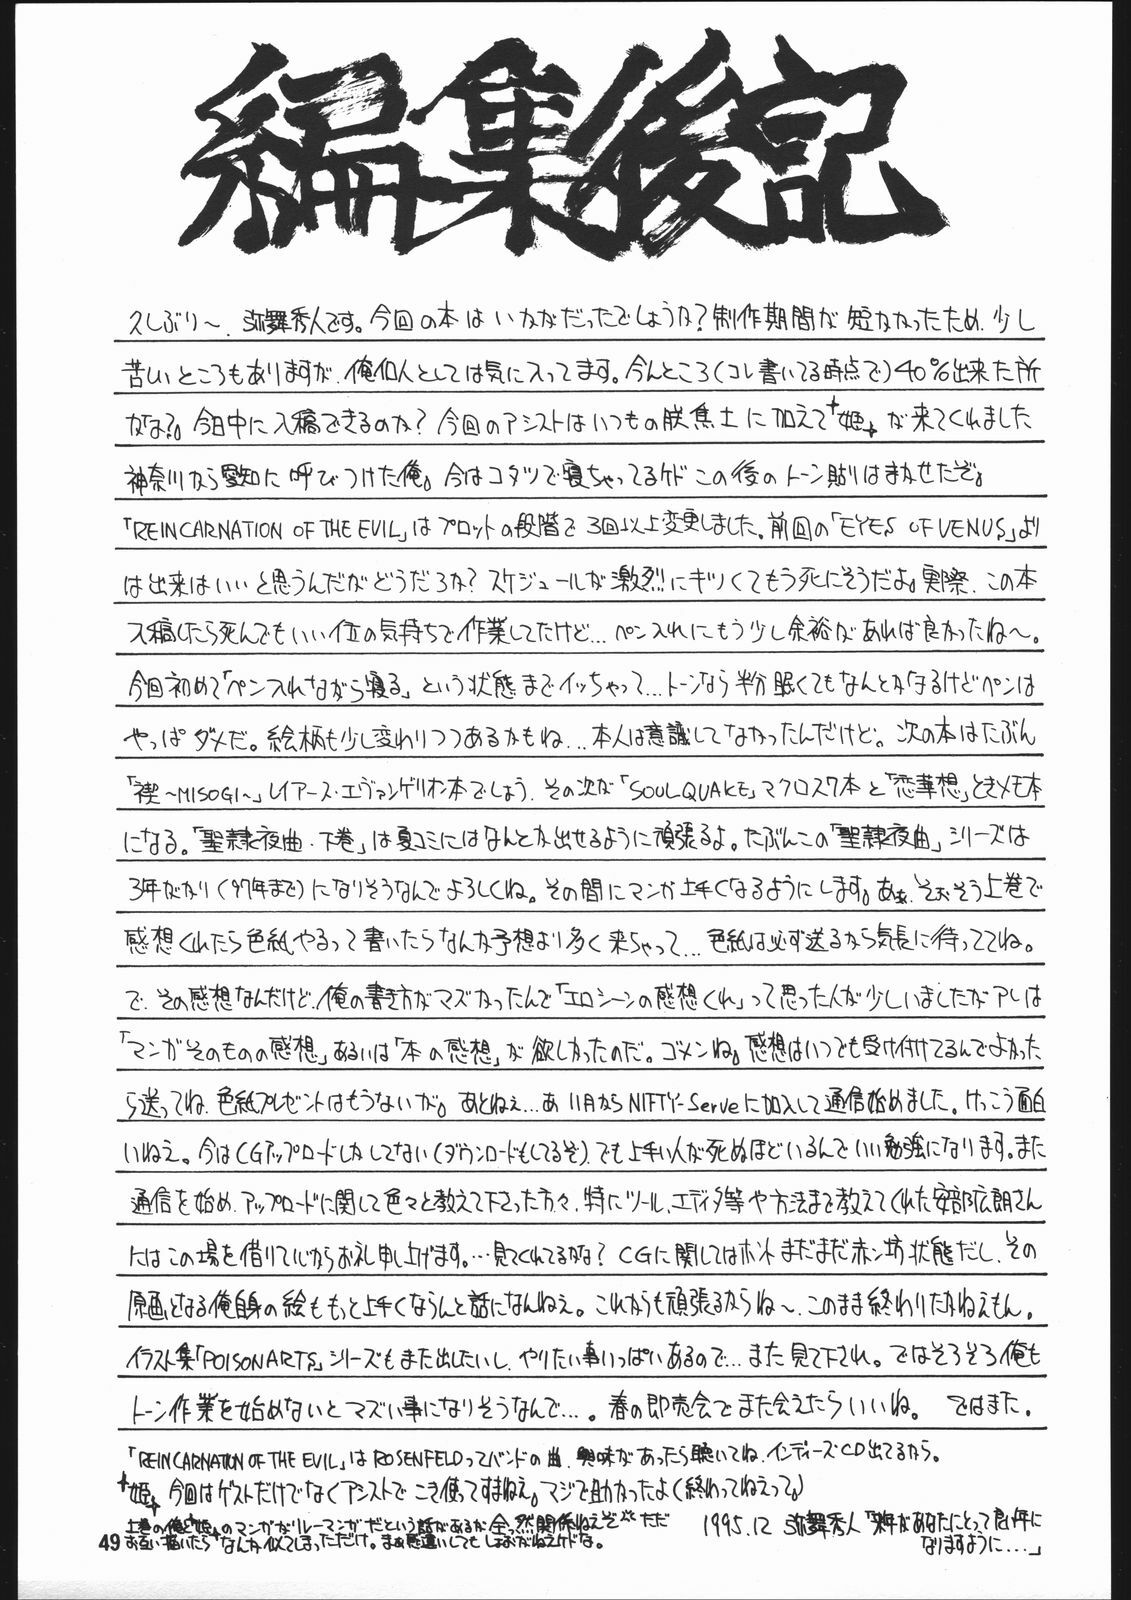 編集後記
久しぶり～、弥舞秀人です。今回の本はいかがだったでしょうか？制作期間が短かかったため、少し
苦しいところもありますが、俺個人としては気に入ってます。今んところ(コレ書いてる時点で)40%出来た所
かな?。今日中に入稿できるのか？今回のアシストはいつもの朕焦土に加えて"姫"が来てくれました
神奈川から愛知に呼びつけた俺。今はコタツで寝ちゃってるケド この後のトーン貼りはまかせたぞ。
「REINCARNATION OF THE EVIL」はプロットの段階で3回以上変更しました。前回の「EYES OF VENUS」より
は出来はいいと思うんだがどうだろな？スケジュールが激烈にキツくてもう死にそうだよ。実際、この本
入稿したら死んでもいい位の気持ちで作業してたけど…ペン入れにもう少し余裕があれば良かったね～。
今回初めて「ペン入れながら寝る」という状態までイッちゃって…トーンなら半分眠くてもなんとかなるけどペンは
やっぱダメだ。絵柄も少し変わりつつあるかもね…本人は意識してなかったんだけど。次の本はたぶん
「禊～MISOGI～」レイアース・エヴァンゲリオン本でしょう、その次が「SOUL QUAKE」マクロス7本と「恋華想」ときメモ本
になる。「聖隷夜曲・下巻」は夏コミにはなんとか出せるように頑張るよ。たぶんこの「聖隷夜曲」シリーズは
3年がかり(97年まで)になりそうなんでよろしくね。その間にマンガ上手くなるようにします。あぁ、そおそう上巻で
感想くれたら色紙やるって書いたらなんか予想より多く来ちゃって…色紙は必ず送るから気長に待っててね。
で、その感想なんだけど、俺の書き方がマズかったんで「エロシーンの感想くれ」って思った人が少しいましたがアレは
「マンガそのものの感想」あるいは「本の感想」が欲しかったのだ。ゴメンね。感想はいつでも受け付けてるんでよかった
ら送ってね、色紙プレゼントはもうないが。あとねぇ…あ 11月からNIFTY-Serveに加入して通信始めました。けっこう面白
いねえ。今はCGアップロードしかしてない(ダウンロードもしてるぞ)、でも上手い人が死ぬほどいるんでいい勉強になります。また
通信を始め、アップロードに関して色々と教えて下さった方々、特にツール、エディタ等や方法まで教えてくれた安部広朗さん
にはこの場を借りて心からお礼申し上げます。…見てくれてるかな？CGに関してはホントまだまだ赤ン坊状態だし、その
原画となる俺自身の絵ももっと上手くならんと話になんねえ。これからも頑張るからね～、このまま終わりたかねえもん。
イラスト集「POISON ARTS」シリーズもまた出したいし、やりたい事いっぱいあるので…また見て下され。ではそろそろ俺も
トーン作業を始めないとマズい事になりそうなんで…。春の即売会でまた会えたらいいね。 ではまた。
「REINCARNATION OF THE EVIL」はROSENFELDってバンドの曲、興味があったら聴いてね、インディーズCD出てるから。
"姫"、今回はゲストだけでなくアシストでこき使ってすまねえ。マジで助かったよ(終わってねえって。)
上巻の俺と"姫"のマンガがリレーマンガだという話があるが全っ然関係ねえぞ ただ
お互い描いたらなんか似てしまっただけ。まぁ勘違いしてもしょおがねえけどな。
1995.12 弥舞秀人「来年があなたにとって良い年に
なりますように…」
49